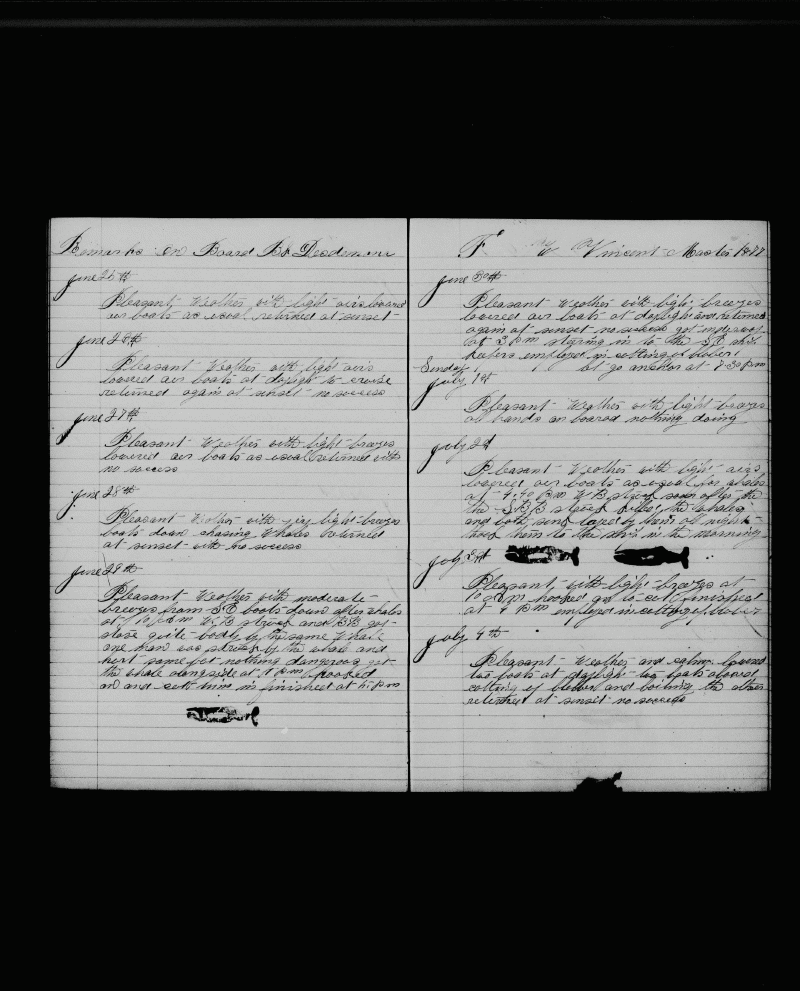 Remarks on Board Bk Desdemona
june 25th
Pleasant Weather with light airs
air boats as usual returned at sunset
june 26th
Pleasant Weather with light airs
lowered air boats at daylight to cruise
returned again at sunset no success
june 27th
Pleasant Weather with light breezes
lowered air boats as usual returned with
no success
june 28th
Pleasant Weather with light breezes
boats down chasing Whales returned
at sunset with no success
june 29th
Pleasant Weather with moderate
breezes from SE boats down after whales
at 10 W.B struck and BB got
stove quite badly by the same Whale
one man was struck by the whale and
hurt some but nothing dangerous got
the whale alongside at 1 pm hooked
on and cutt him in finished at 4 pm
F W Vincent Master 1877
june 30th
Pleasant Weather with light breezes
lowered air boats at daylight and returned
again at sunset no success got underway
at 3 pm stering in to the
employed in cutting of
let go anchor at 7-30 pm
Sunday
july 1st
Pleasant Weather with light breezes
all hands on board nothing doing
july 2d
Pleasant Weather with light airs
lowered air boats as usual for whales
at 4.40 Pm W B struck soon after the
the S B struck killed the whales
and both by them all night
took them to the ship in the morning
july 3d
Pleasant with light breezes at
10 hooked on to cut finished
at 4 Pm employed in cutting of blubber
july 4th
Pleasant Weather and calm lowered
two boats at daylight two boats aboard
cutting of blubber and boiling the others
returned at sunset no success